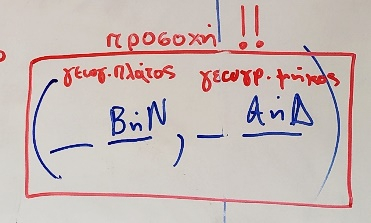 προσοχή !!
γεωγ. πλάτος γεωγρ. μήκος
( _ Β ή Ν , _ Α ή Δ )